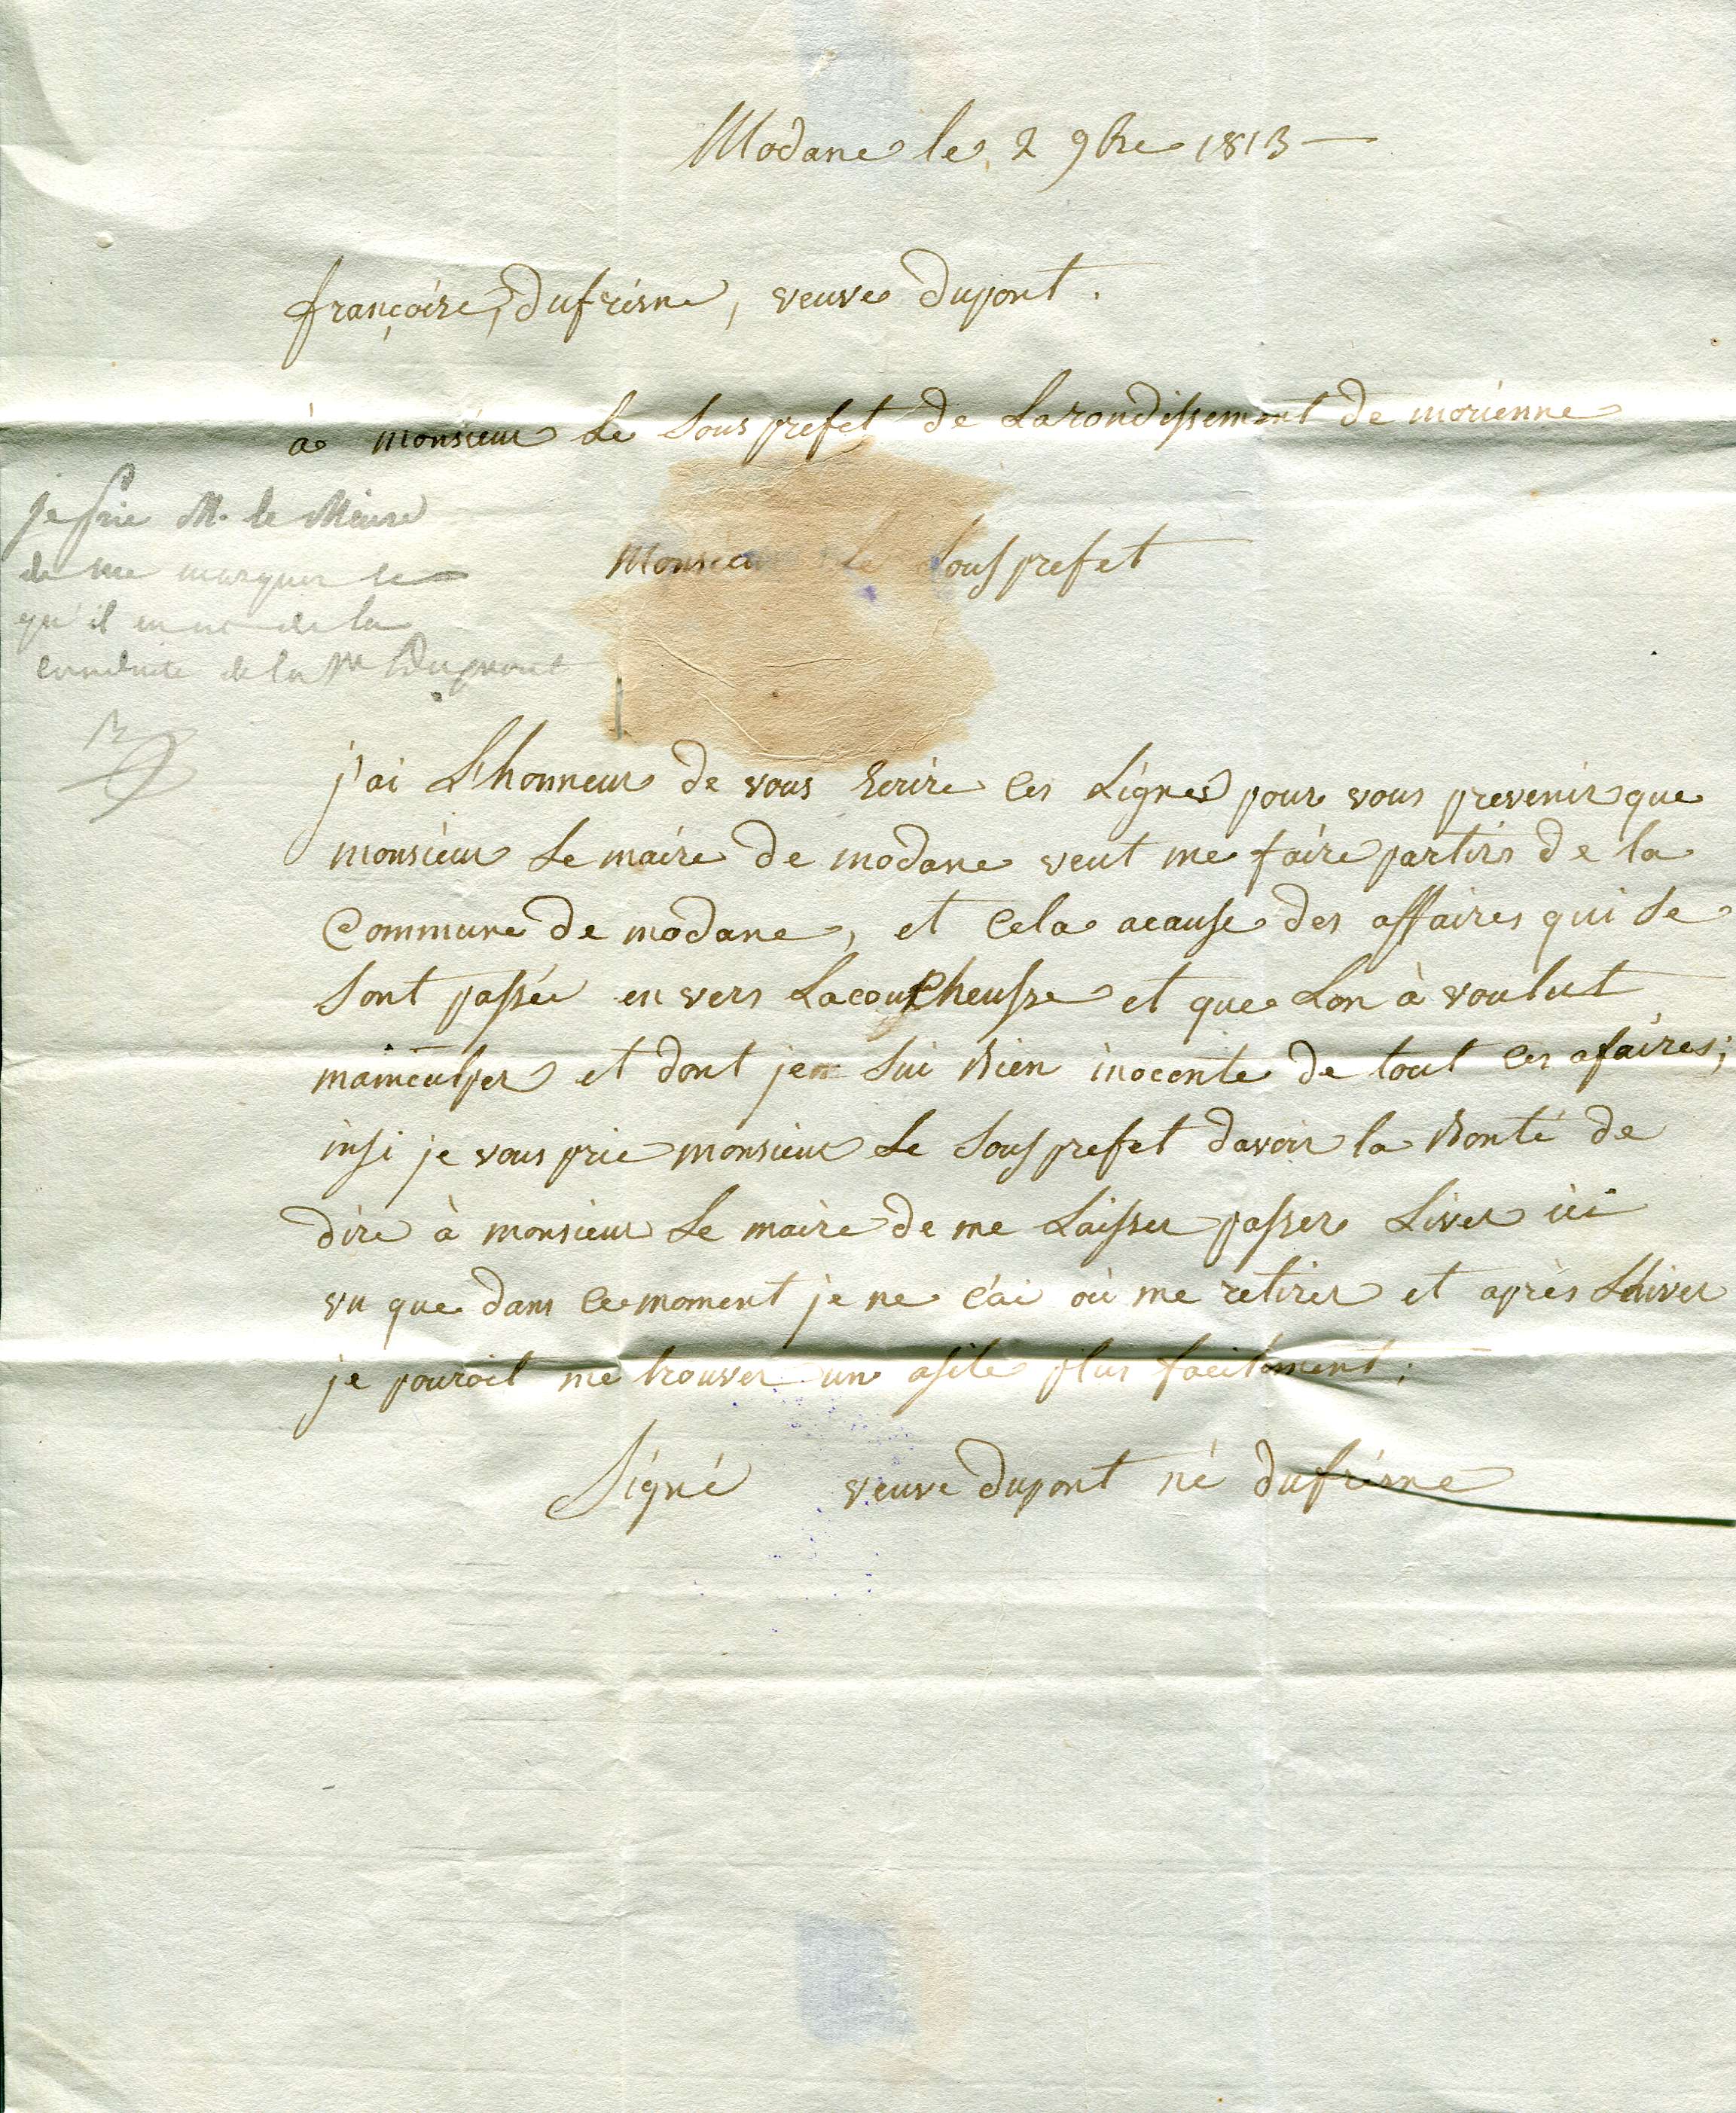 Modane le 2 9bre 1813
françoise, Dufrésne, veuve Dupont.
à monsieur Le Sous prefet de Larondissement de moriénne
je prie M. le Maire
de me marquer ce
qu'il en est de la
conduite de la Ve Dupont
Monsieur le Sous prefet
j'ai L'honneur de vous Ecrire ces Lignes pour vous prevenir que
monsieur Le maire de modane veut me faire partir de la
Commune de modane, et cela acause des affaires qui se
Sont passée en vers Lacoucheusse et que Lon à voulut
mainculper et dont jen Sui Bien inocente de tout ces afaires;
insi je vous prie monsieur Le Sous prefet davoir la Bonté de
dire à monsieur Le maire de me Laisser passer Liver ici
vu que dans ce moment je ne c'ai où me retirer et après Lhiver
je pouroit me trouver un asile plus facilement;
Signé veuve Dupont né dufrésne